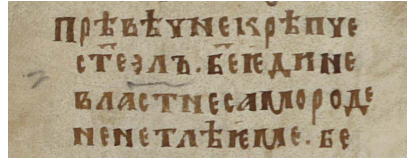 прѣвѣчнекрѣпче
стеѕлъ·беꙁедине
властнесамороде
ненетлѣнме·бе